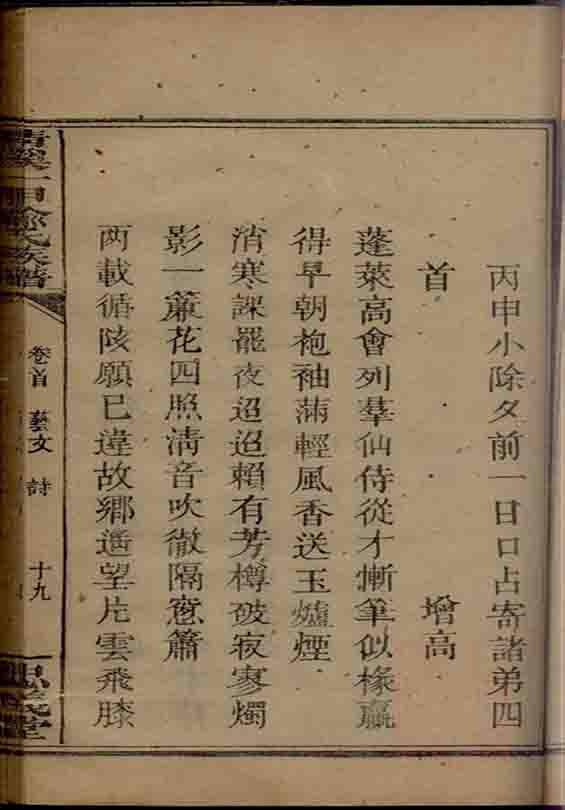 丙申小除夕前一日口占寄諸弟四
首 增高
蓬萊高會列羣仙侍從才慚筆似椽贏
得早朝袍袖滿輕風香送玉爐煙
消寒課罷夜迢迢賴有芳樽破寂寥燭
影一簾花四照清音吹徹隔窻簫
两載循陔願已違故鄉遥望片雲飛膝
氏族譜
卷首 藝文 詩 十九
堂